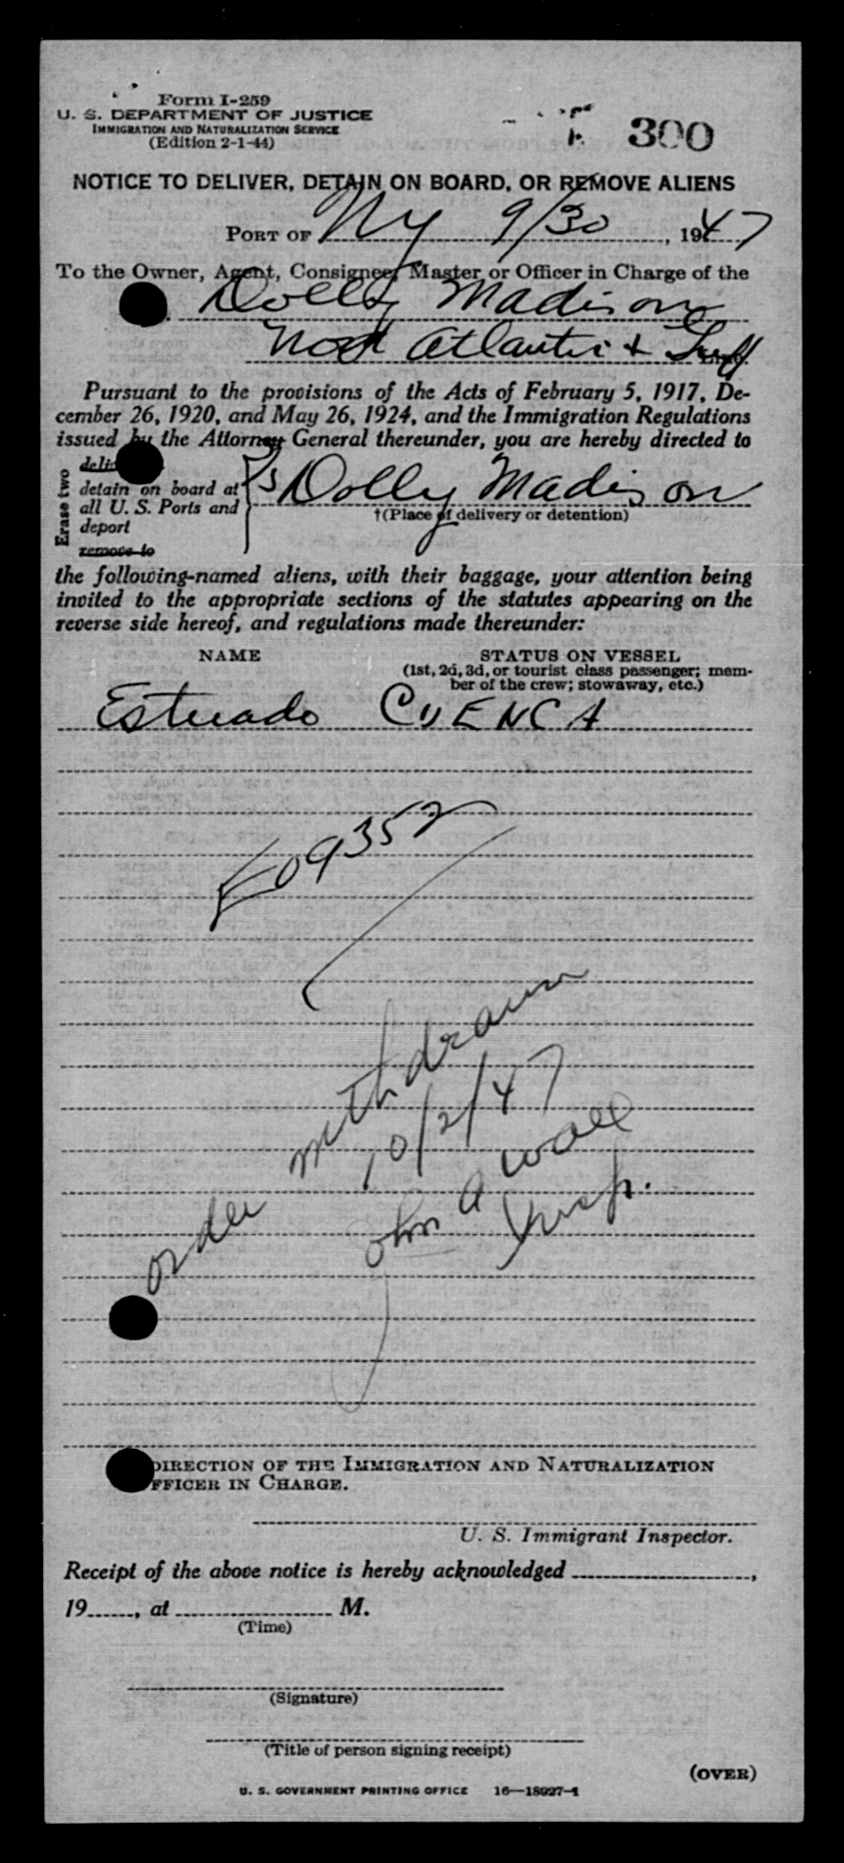 Form I-259
U. S. DEPARTMENT OF JUSTICE
IMMIGRATION AND NATURALIZATION SERVICE
(Edition 2-1-44)
300
NOTICE TO DELIVER, DETAIN ON BOARD, OR REMOVE ALIENS
PORT OF NY 9/30, 1947
To the Owner, Agent, Consignee, Master or Officer in Charge of the
Dolly Madison
Atlantic + Gulf
Pursuant to the provisions of the Acts of February 5, 1917, De-
cember 26, 1920, and May 26, 1924, and the Immigration Regulations
issued by the Attorney General thereunder, you are hereby directed to
Erase two
detain on board at
all U. S. Ports and
deport
remove to
Dolly Madison
†(Place of delivery or detention)
the following-named aliens, with their baggage, your attention being
invited to the appropriate sections of the statutes appearing on the
reverse side hereof, and regulations made thereunder:
NAME STATUS ON VESSEL
(1st, 2d, 3d, or tourist class passenger; mem-
ber of the crew; stowaway, etc.)
CUENCA
09352
order withdrawn
10/2/47
John A Wall
Insp.
DIRECTION OF THE IMMIGRATION AND NATURALIZATION
OFFICER IN CHARGE.
U. S. Immigrant Inspector.
Receipt of the above notice is hereby acknowledged ,
19 , at M.
(Time)
(Signature)
(Title of person signing receipt)
(OVER)
U. S. GOVERNMENT PRINTING OFFICE 16—18927-1